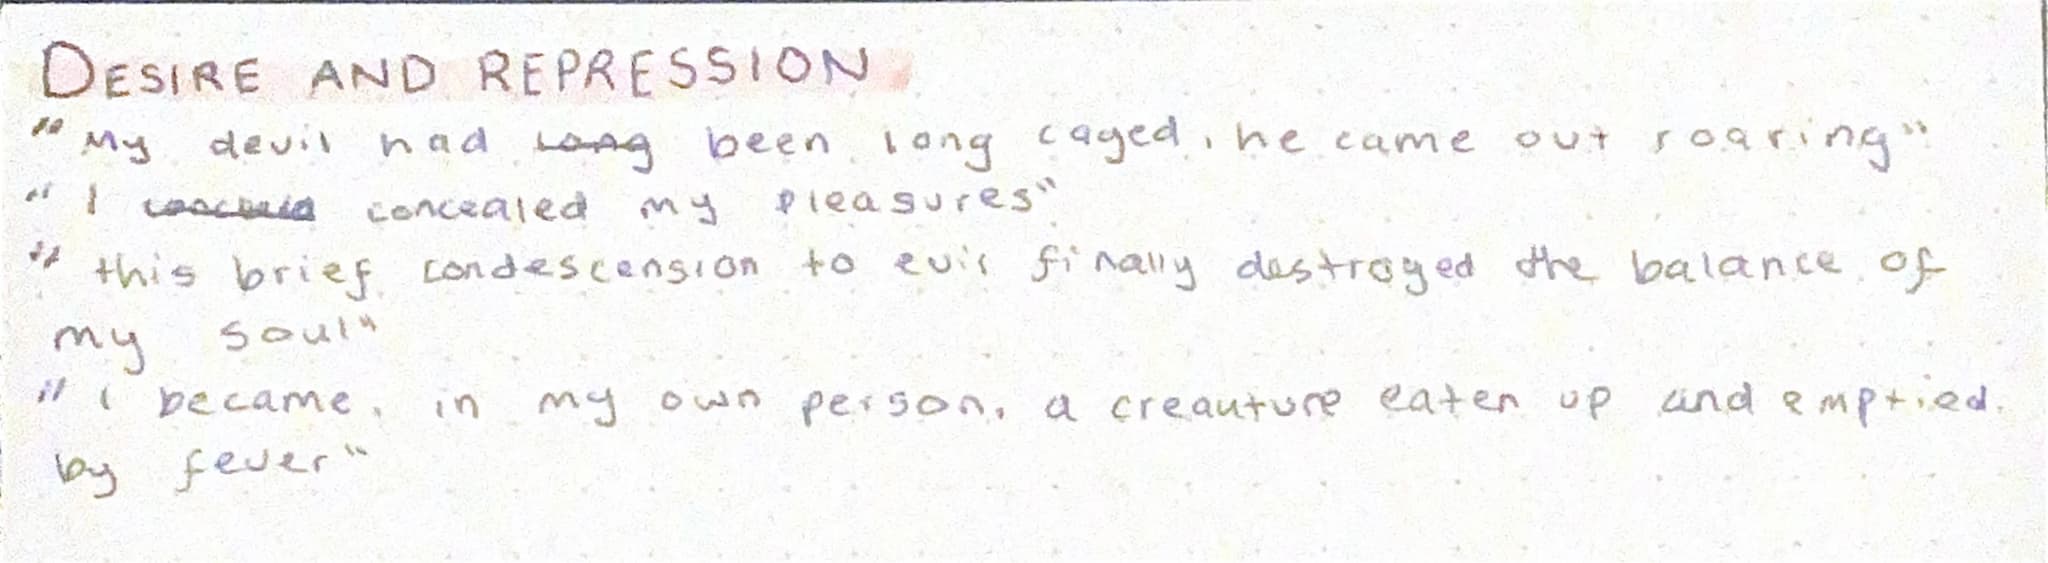 DESIRE AND REPRESSION
"My devil had long been long caged, he came out roaring"
"I concealed my pleasures"
"this brief condescension to evil finally destroyed the balance of
my soul"
"I became, in my own person, a creauture eaten up and emptied.
by fever"